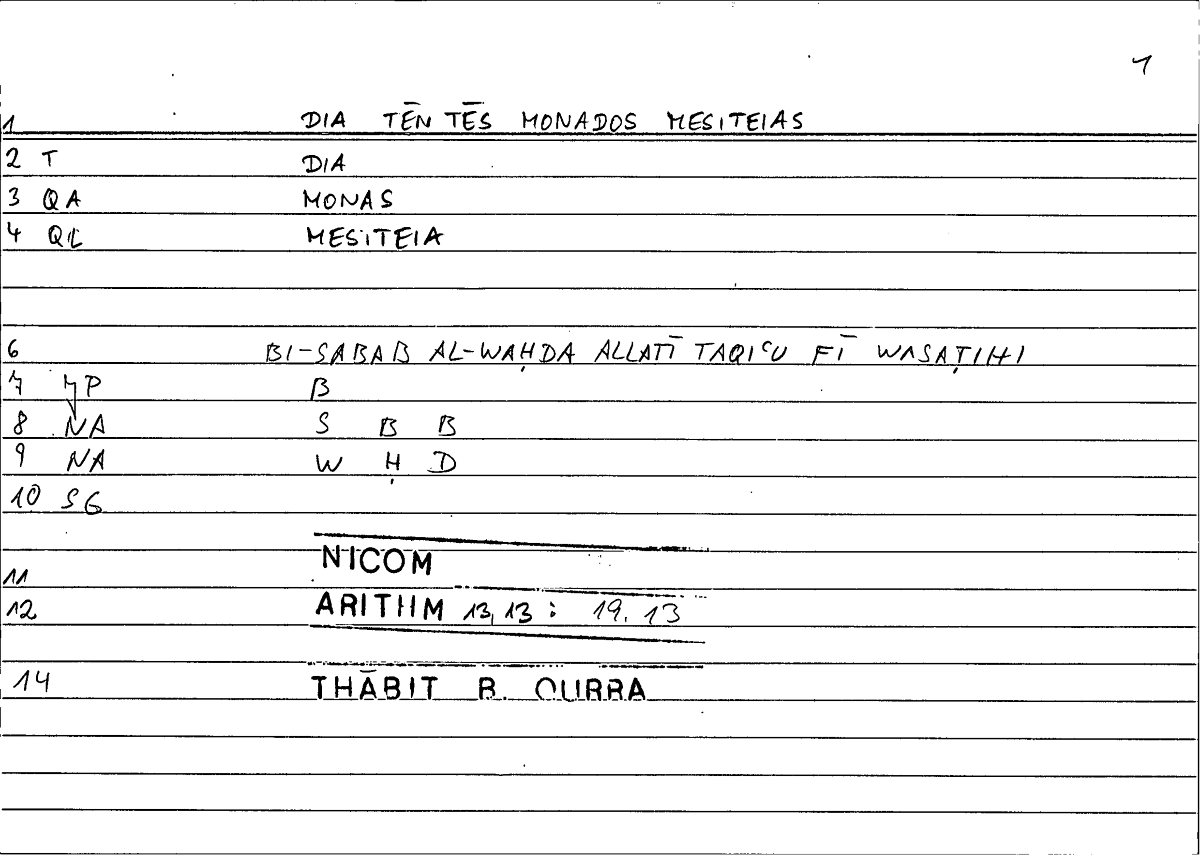 1
1 DIA TĒN TĒS MONADOS MESITEIAS
2 T DIA
3 QA MONAS
4 QC MESITEIA
6 BI-SABAB AL-WAḤDA ALLATĪ TAQIʿU FĪ WASAṬIHI
7 P B
8 NA S B B
9 NA W Ḥ D
10 SG
11 NICOM
12 ARITHM 13,13 : 19.13
14 THĀBIT B. QURRA